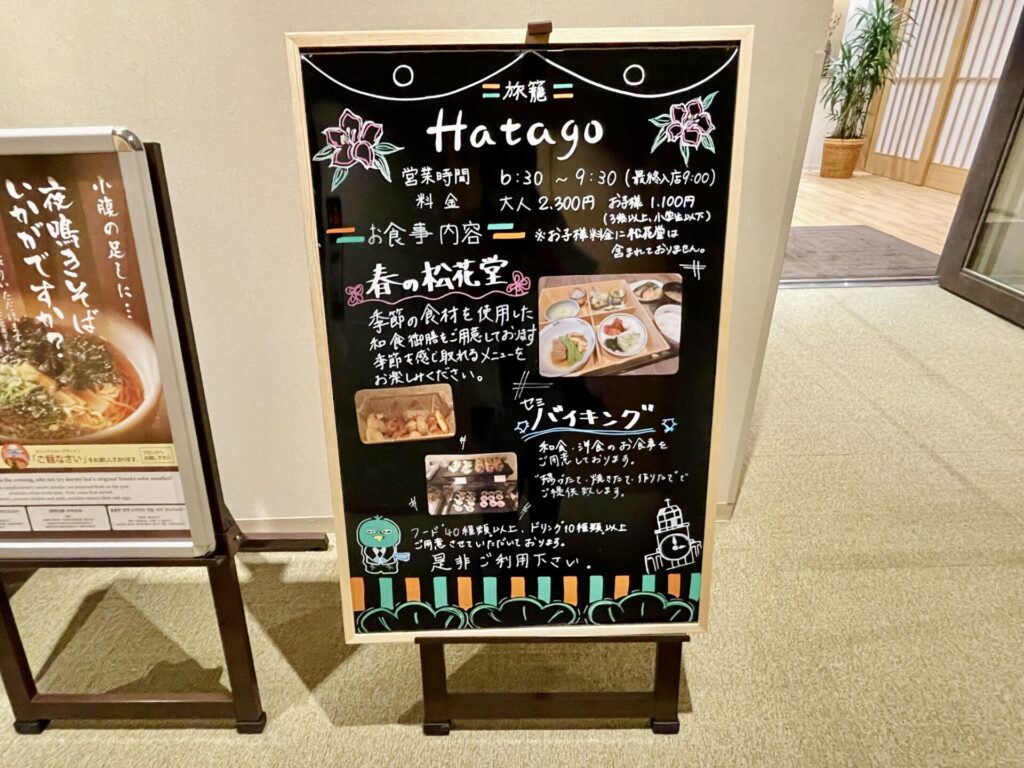 小腹の足しに…
夜鳴きそば
いかがですか？
「ご麺なさい」
旅籠
Hatago
営業時間 6:30 ～ 9:30 (最終入店9:00)
料金 大人 2.300円 お子様 1.100円
(3歳以上、小学生以下)
お食事内容
※お子様料金に松花堂は
含まれておりません。
春の松花堂
季節の食材を使用した
和食御膳をご用意しております
季節を感じ取れるメニューを
お楽しみください。
セミ
バイキング
和食・洋食のお食事を
ご用意しております。
揚げたて・焼きたて・作りたてで
ご提供致します。
フード40種類以上、ドリンク10種類以上
ご用意させていただいております。
是非ご利用下さい。